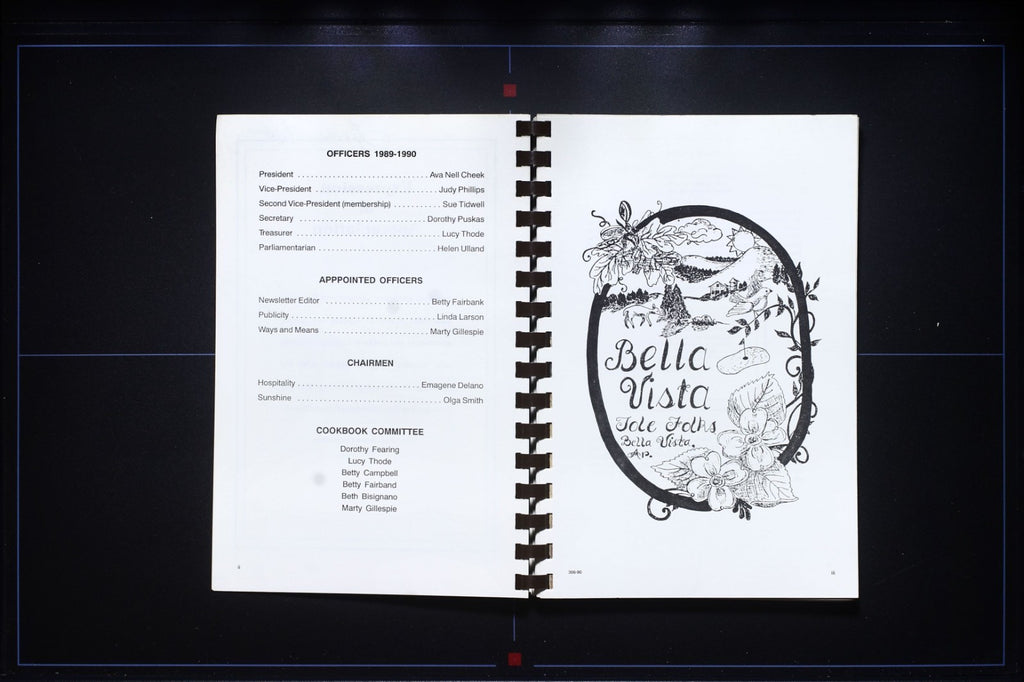 OFFICERS 1989-1990
President . . . . . . . . . . . . . . . . . . . . . . . . . . . . Ava Nell Cheek
Vice-President . . . . . . . . . . . . . . . . . . . . . . . . . . Judy Phillips
Second Vice-President (membership) . . . . . . . . . . Sue Tidwell
Secretary . . . . . . . . . . . . . . . . . . . . . . . . . . . Dorothy Puskas
Treasurer . . . . . . . . . . . . . . . . . . . . . . . . . . . . . . . Lucy Thode
Parliamentarian . . . . . . . . . . . . . . . . . . . . . . . . . Helen Ulland
APPPOINTED OFFICERS
Newsletter Editor . . . . . . . . . . . . . . . . . . . . . . Betty Fairbank
Publicity . . . . . . . . . . . . . . . . . . . . . . . . . . . . . . Linda Larson
Ways and Means . . . . . . . . . . . . . . . . . . . . . . . Marty Gillespie
CHAIRMEN
Hospitality . . . . . . . . . . . . . . . . . . . . . . . . . . Emagene Delano
Sunshine . . . . . . . . . . . . . . . . . . . . . . . . . . . . . . . Olga Smith
COOKBOOK COMMITTEE
Dorothy Fearing
Lucy Thode
Betty Campbell
Betty Fairband
Beth Bisignano
Marty Gillespie
ii
Bella
Vista
Tole Folks
Bella Vista,
Ar.
iii